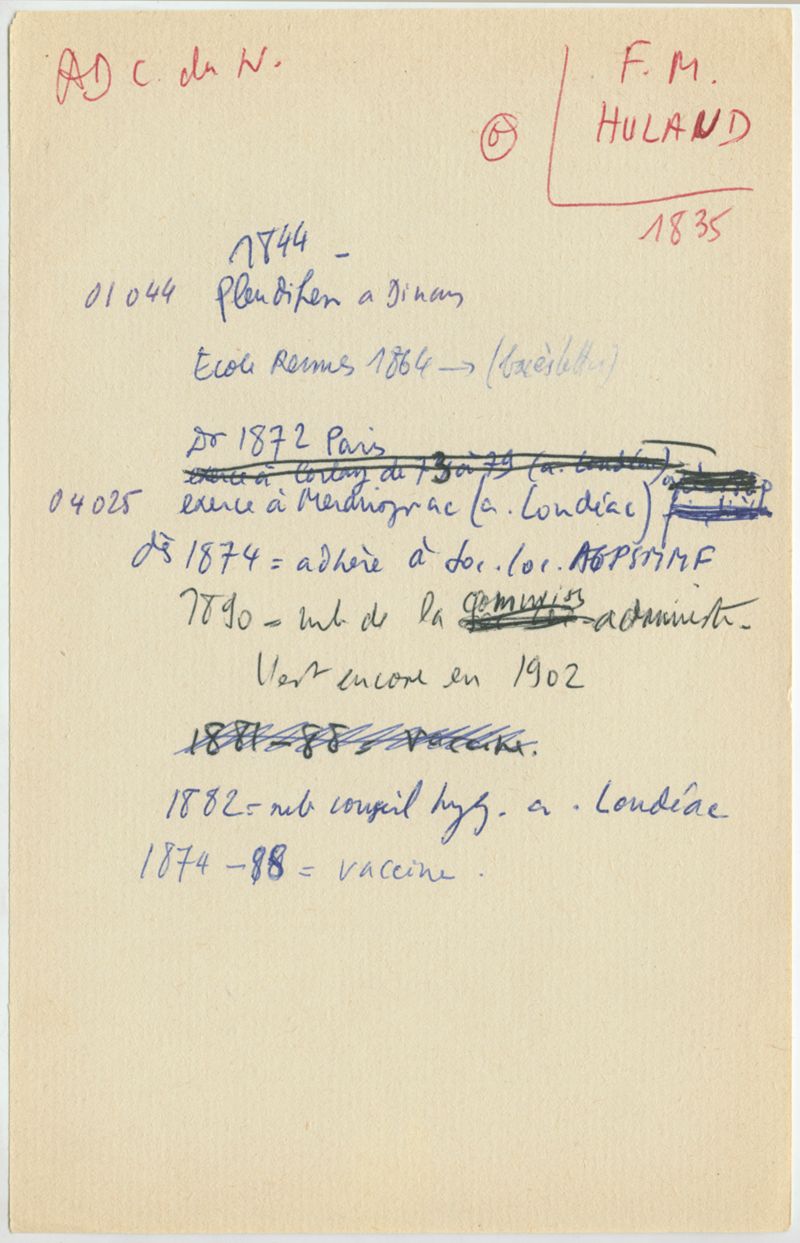 AD C. du N.
F. M.
HULAND
1835
1844 -
01044 Pleudihen a Dinan
Ecole Rennes 1864 → (bac ès lettres)
Dr 1872 Paris
exerce à Corlay de 73 à 79 (a. Loudéac)
04025 exerce à Merdrignac (a. Loudéac)
dès 1874 = adhère à soc. loc. AGPSMMF
1890 = mb de la commiss administ.
Vest encore en 1902
1881-88 = vaccine.
1882 = mb conseil hyg. a. Loudéac
1874-88 = vaccine.